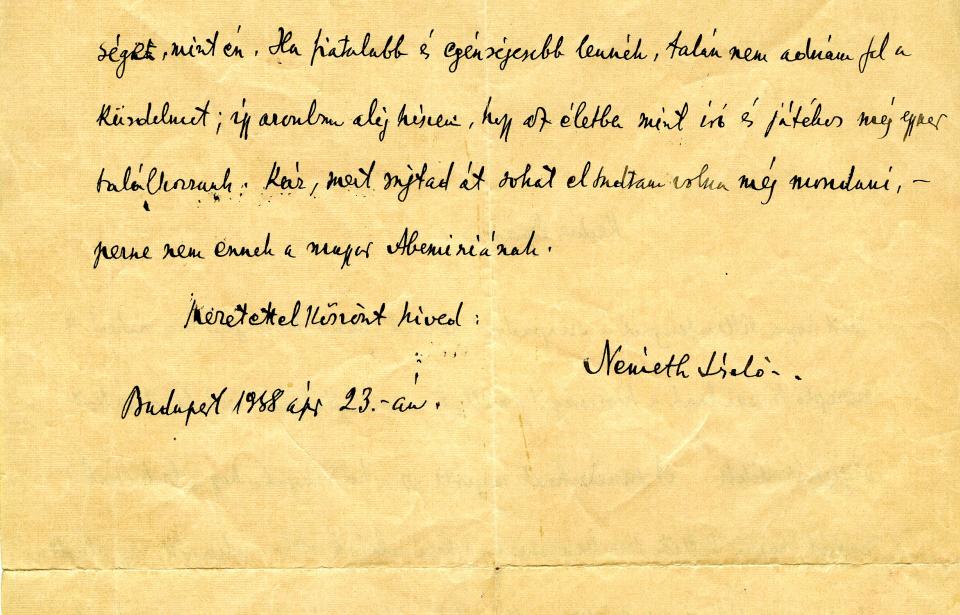 séget, mint én. Ha fiatalabb és egészségesebb lennék, talán nem adnám fel a
küzdelmet; így azonban alig hiszem, hogy az életbe mint író és játékos még egyszer
találkozzunk. Kár, mert rajtad át sokat el tudtam volna még mondani, –
persze nem ennek a magyar Abesziniának.
Szeretettel köszönt híved:
Németh László.
Budapest 1958 ápr 23.-án.